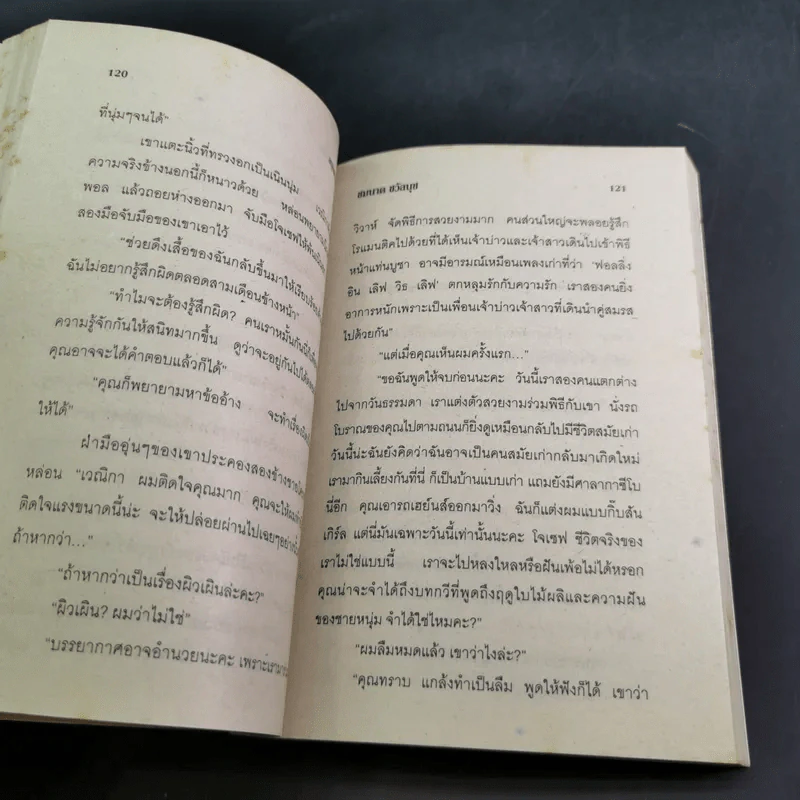 120
ที่นุ่มๆจนได้"
เขาแตะนิ้วที่ทรวงอกเป็นเนินนุ่ม
ความจริงข้างนอกนี้ก็หนาวด้วย หล่อนพยายาม
พอล แล้วถอยห่างออกมา จับมือโจเซฟให้พ้น
สองมือจับมือของเขาเอาไว้
"ช่วยดึงเสื้อของฉันกลับขึ้นมาให้เรียบร้อย
ฉันไม่อยากรู้สึกผิดตลอดสามเดือนข้างหน้า"
"ทำไมจะต้องรู้สึกผิด? คนเราหมั้นกันนี่
ความรู้จักกันให้สนิทมากขึ้น ดูว่าจะอยู่กันไปได้
คุณอาจจะได้คำตอบแล้วก็ได้"
"คุณก็พยายามหาข้ออ้าง จะทำเรื่อง
ให้ได้"
ฝ่ามืออุ่นๆของเขาประคองสองข้าง
หล่อน "เวณิกา ผมติดใจคุณมาก คุณจะให้
ติดใจแรงขนาดนี้น่ะ จะให้ปล่อยผ่านไปเฉยๆ
ถ้าหากว่า..."
"ถ้าหากว่าเป็นเรื่องผิวเผินล่ะคะ?"
"ผิวเผิน? ผมว่าไม่ใช่"
"บรรยากาศอาจอำนวยนะคะ เพราะเรา
ชมนาด ชวัลนุช
121
วิวาห์ จัดพิธีการสวยงามมาก คนส่วนใหญ่จะพลอยรู้สึก
โรแมนติคไปด้วยที่ได้เห็นเจ้าบ่าวและเจ้าสาวเดินไปเข้าพิธี
หน้าแท่นบูชา อาจมีอารมณ์เหมือนเพลงเก่าที่ว่า 'ฟอลลิ่ง
อิน เลิฟ วิธ เลิฟ' ตกหลุมรักกับความรัก เราสองคนยิ่ง
อาการหนักเพราะเป็นเพื่อนเจ้าบ่าวเจ้าสาวที่เดินนำคู่สมรส
ไปด้วยกัน"
"แต่เมื่อคุณเห็นผมครั้งแรก..."
"ขอฉันพูดให้จบก่อนนะคะ วันนี้เราสองคนแตกต่าง
ไปจากวันธรรมดา เราแต่งตัวสวยงามร่วมพิธีกับเขา นั่งรถ
โบราณของคุณไปตามถนนก็ยิ่งดูเหมือนกลับไปมีชีวิตสมัยเก่า
วันนี้น่ะฉันยังคิดว่าฉันอาจเป็นคนสมัยเก่ากลับมาเกิดใหม่
เรามากินเลี้ยงกันที่นี่ ก็เป็นบ้านแบบเก่า แถมยังมีศาลากาซีโบ
นี่อีก คุณเอารถเฮย์นส์ออกมาวิ่ง ฉันก็แต่งผมแบบกิ๊บสัน
เกิร์ล แต่นี่มันเฉพาะวันนี้เท่านั้นนะคะ โจเซฟ ชีวิตจริงของ
เราไม่ใช่แบบนี้ เราจะไปหลงใหลหรือฝันเพ้อไม่ได้หรอก
คุณน่าจะจำได้ถึงบทกวีที่พูดถึงฤดูใบไม้ผลิและความฝัน
ของชายหนุ่ม จำได้ใช่ไหมคะ?"
"ผมลืมหมดแล้ว เขาว่าไงล่ะ?"
"คุณทราบ แกล้งทำเป็นลืม พูดให้ฟังก็ได้ เขาว่า